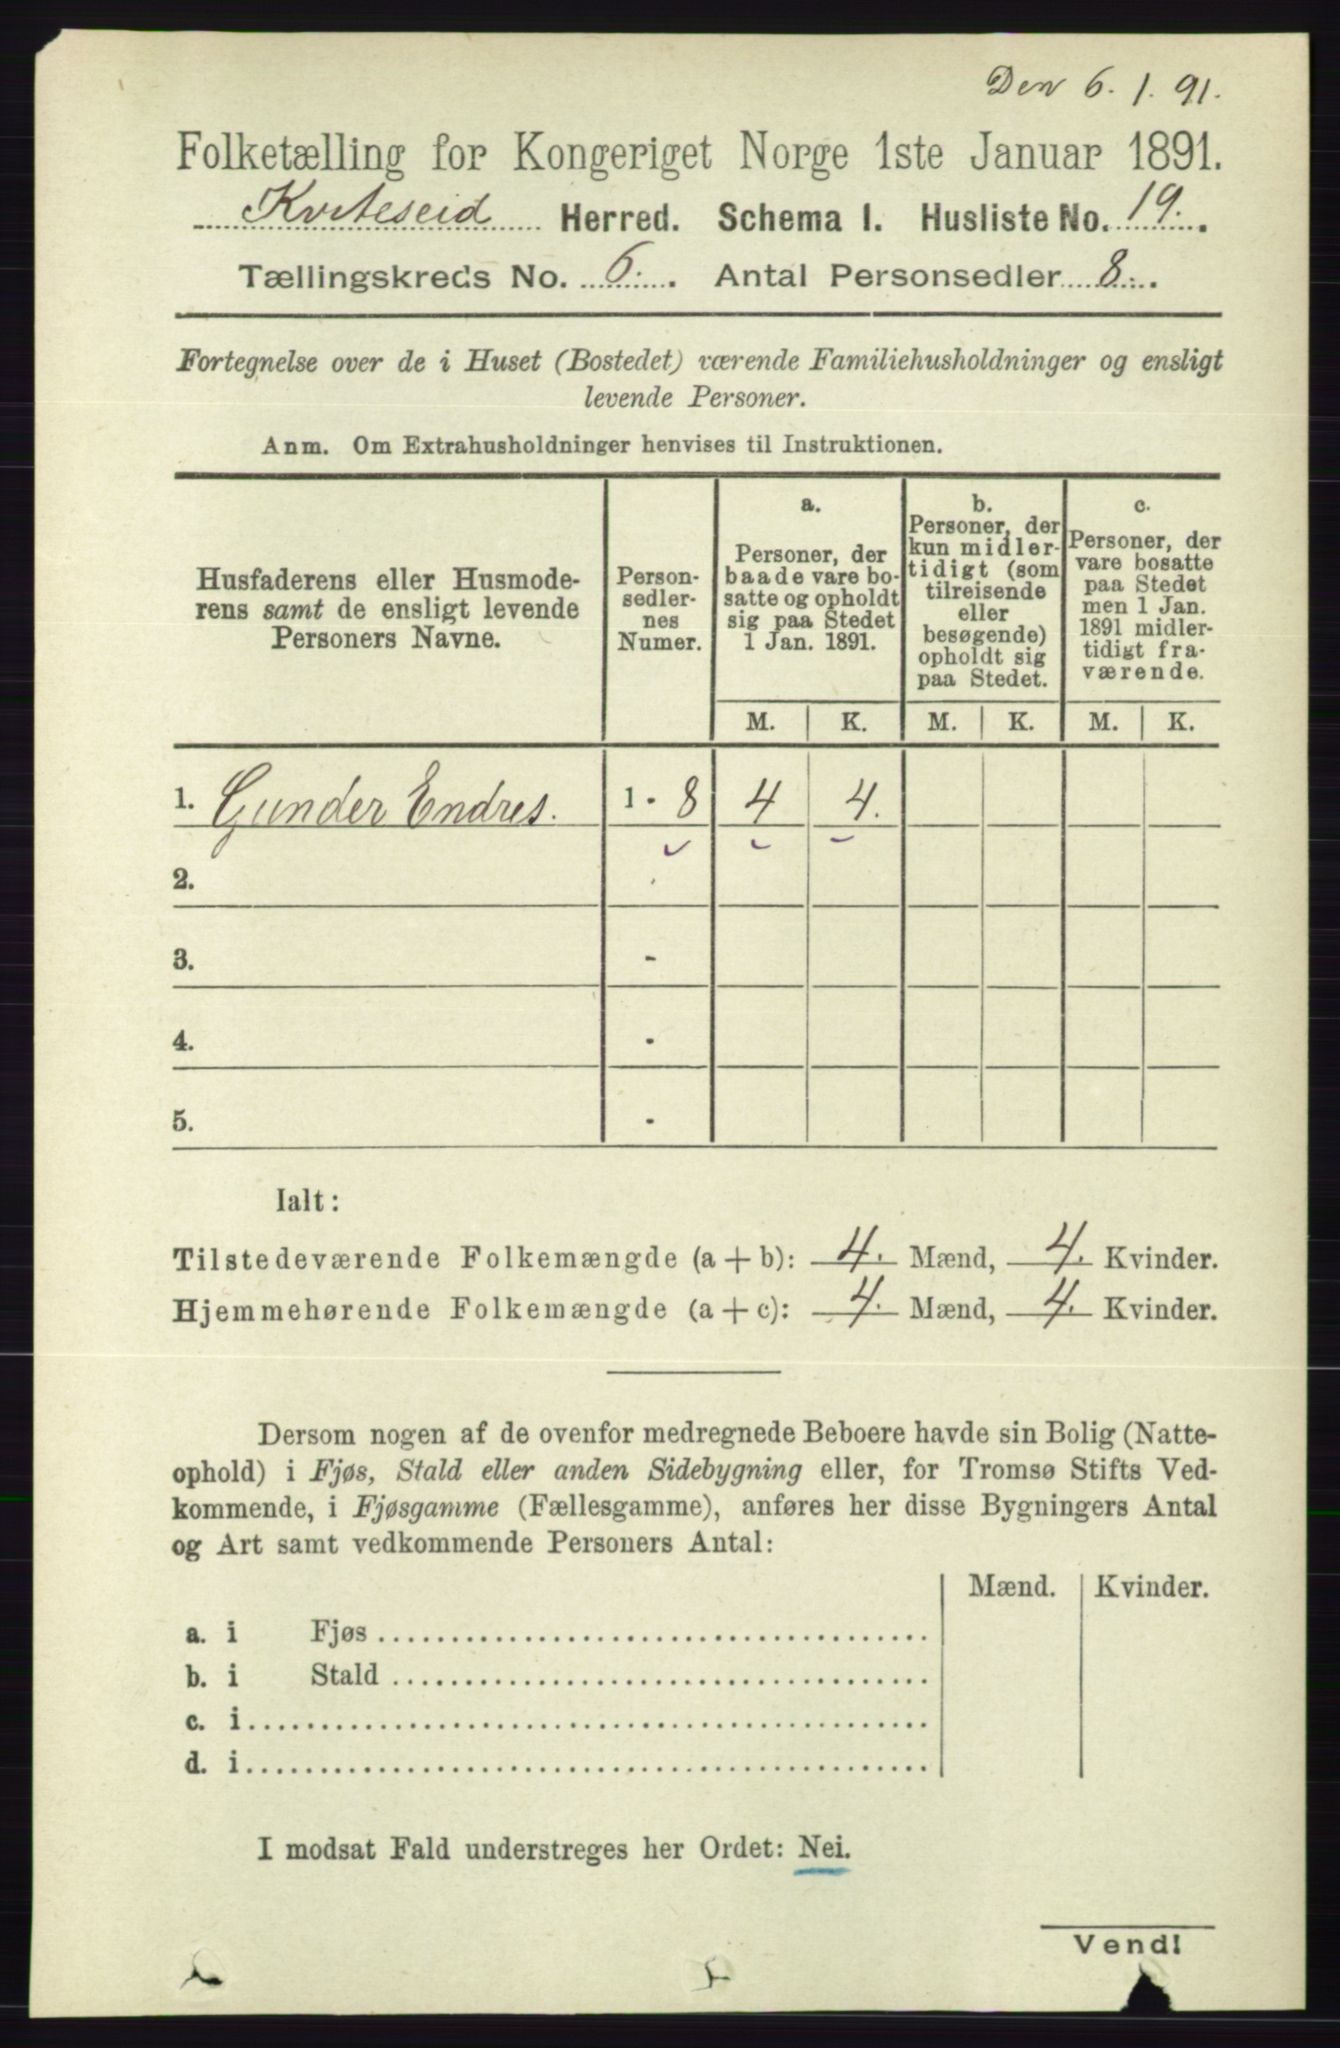 Den 6. 1. 91.
Folketælling for Kongeriget Norge 1ste Januar 1891.
Kviteseid Herred. Schema I. Husliste No. 19.
Tællingskreds No. 6. Antal Personsedler 8.
Fortegnelse over de i Huset (Bostedet) værende Familiehusholdninger og ensligt
levende Personer.
Anm. Om Extrahusholdninger henvises til Instruktionen.
Husfaderens eller Husmode-
rens samt de ensligt levende
Personers Navne.
Person-
sedler-
nes
Numer.
a.
Personer, der
baade vare bo-
satte og opholdt
sig paa Stedet
1 Jan. 1891.
b.
Personer, der
kun midler-
tidigt (som
tilreisende
eller
besøgende)
opholdt sig
paa Stedet.
c.
Personer, der
vare bosatte
paa Stedet
men 1 Jan.
1891 midler-
tidigt fra-
værende.
M. K. M. K. M. K.
1. Gunder Endres. 1 - 8 4 4.
2.
3. -
4. -
5. -
Ialt:
Tilstedeværende Folkemængde (a + b): 4. Mænd, 4. Kvinder.
Hjemmehørende Folkemængde (a + c): 4. Mænd, 4. Kvinder.
Dersom nogen af de ovenfor medregnede Beboere havde sin Bolig (Natte-
ophold) i Fjøs, Stald eller anden Sidebygning eller, for Tromsø Stifts Ved-
kommende, i Fjøsgamme (Fællesgamme), anføres her disse Bygningers Antal
og Art samt vedkommende Personers Antal:
Mænd. Kvinder.
a. i Fjøs
b. i Stald
c. i
d. i
I modsat Fald understreges her Ordet: Nei.
Vend!